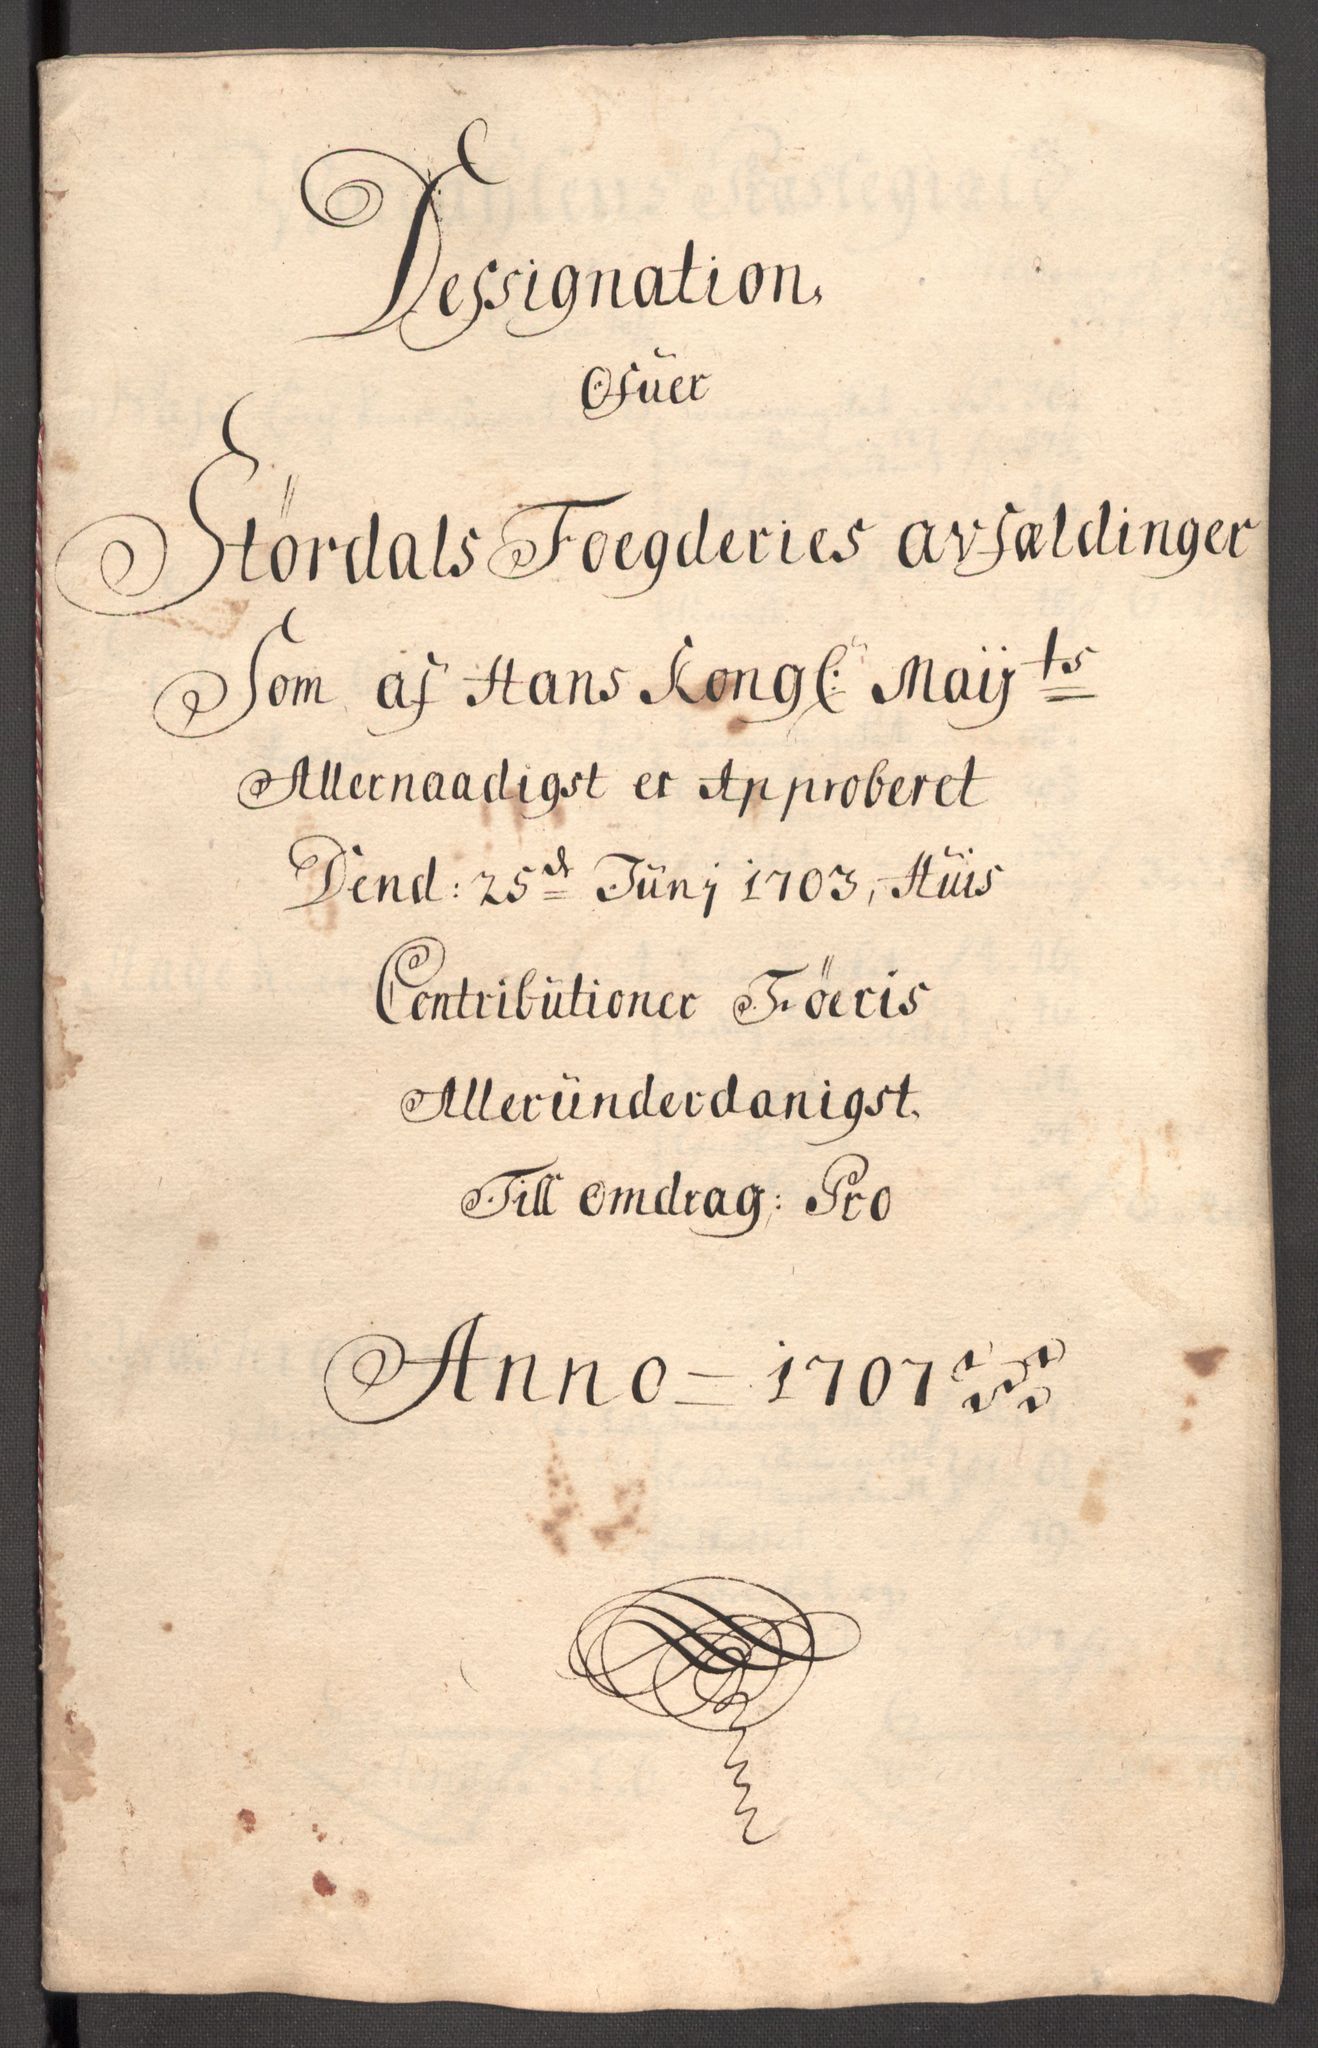 Dessignation,
Ofuer
Stördals Foegderies avfældinger
Som af Hans Kongl: Maijts
Allernaadigst er Approberet
Dend: 25de Junj 1703, Huis
Contributioner Föeris
Allerunderdanigst.
Till omdrag: Pro
Anno = 1707